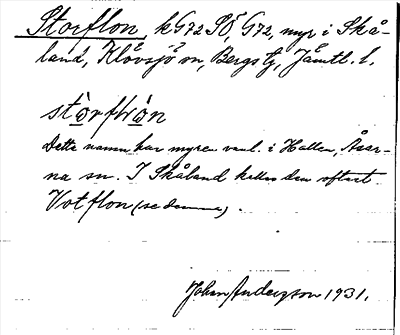 Storflon, k G72 SÖ, G72, myr i Skå-
land, Klövsjö sn, Bergs tg, Jämtl. l.
stòrflròn
Detta namn har myren vanl. i Hallen, Åsar-
na sn. I Skåland kallas den oftast
Votflon (se denna).
Johan Anderzson 1931.